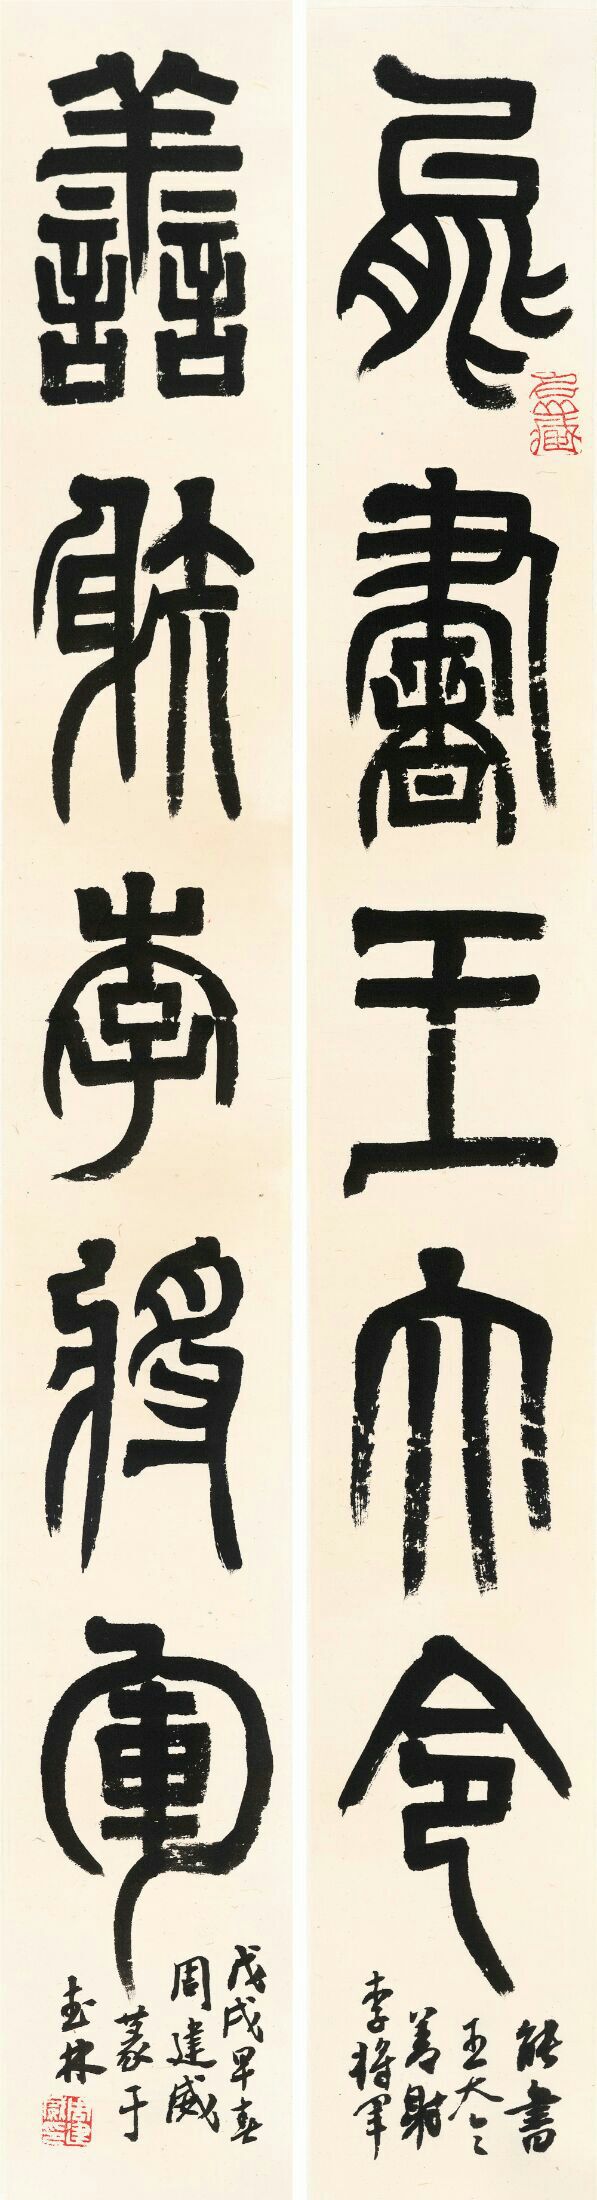 能書王大令
能書
王大令
善射
李將軍
善射李將軍
戊戌早春
周建威
篆于
吉林